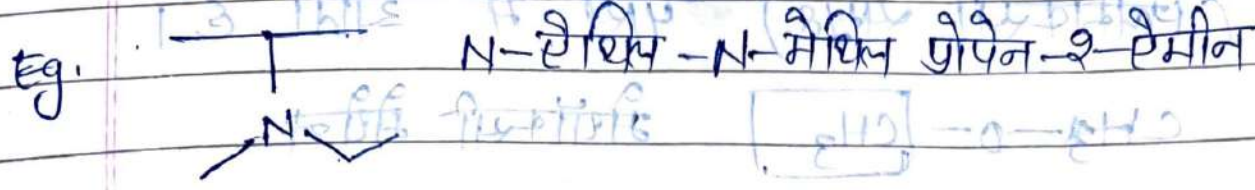 Eg. N-ऐथिल-N-मैथिल प्रोपेन-२-ऐमीन
N